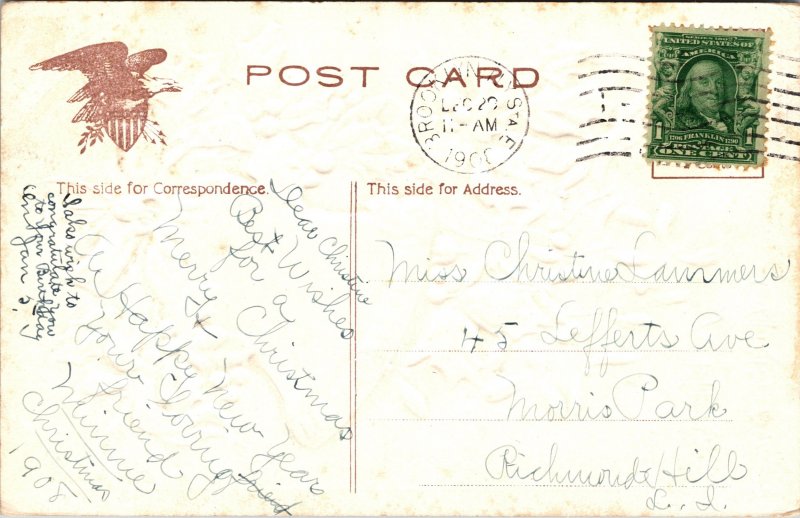 POST CARD
BROOKLYN STA. F.
DEC 20
11-AM
SERIES 1902
UNITED STATES OF
AMERICA
1706 FRANKLIN 1790
1 POSTAGE 1
ONE CENT
This side for Correspondence.
This side for Address.
I also wish to
congratulate you
to your Birthday
on Jan 2.
Dear Christine
Best Wishes
for a
Merry Christmas
&
A Happy New Years
Your Loving friend
friend
Minnie
Christmas
1908
Miss Christine Lammers
45 Lefferts Ave
Morris Park
Richmond Hill
L. I.